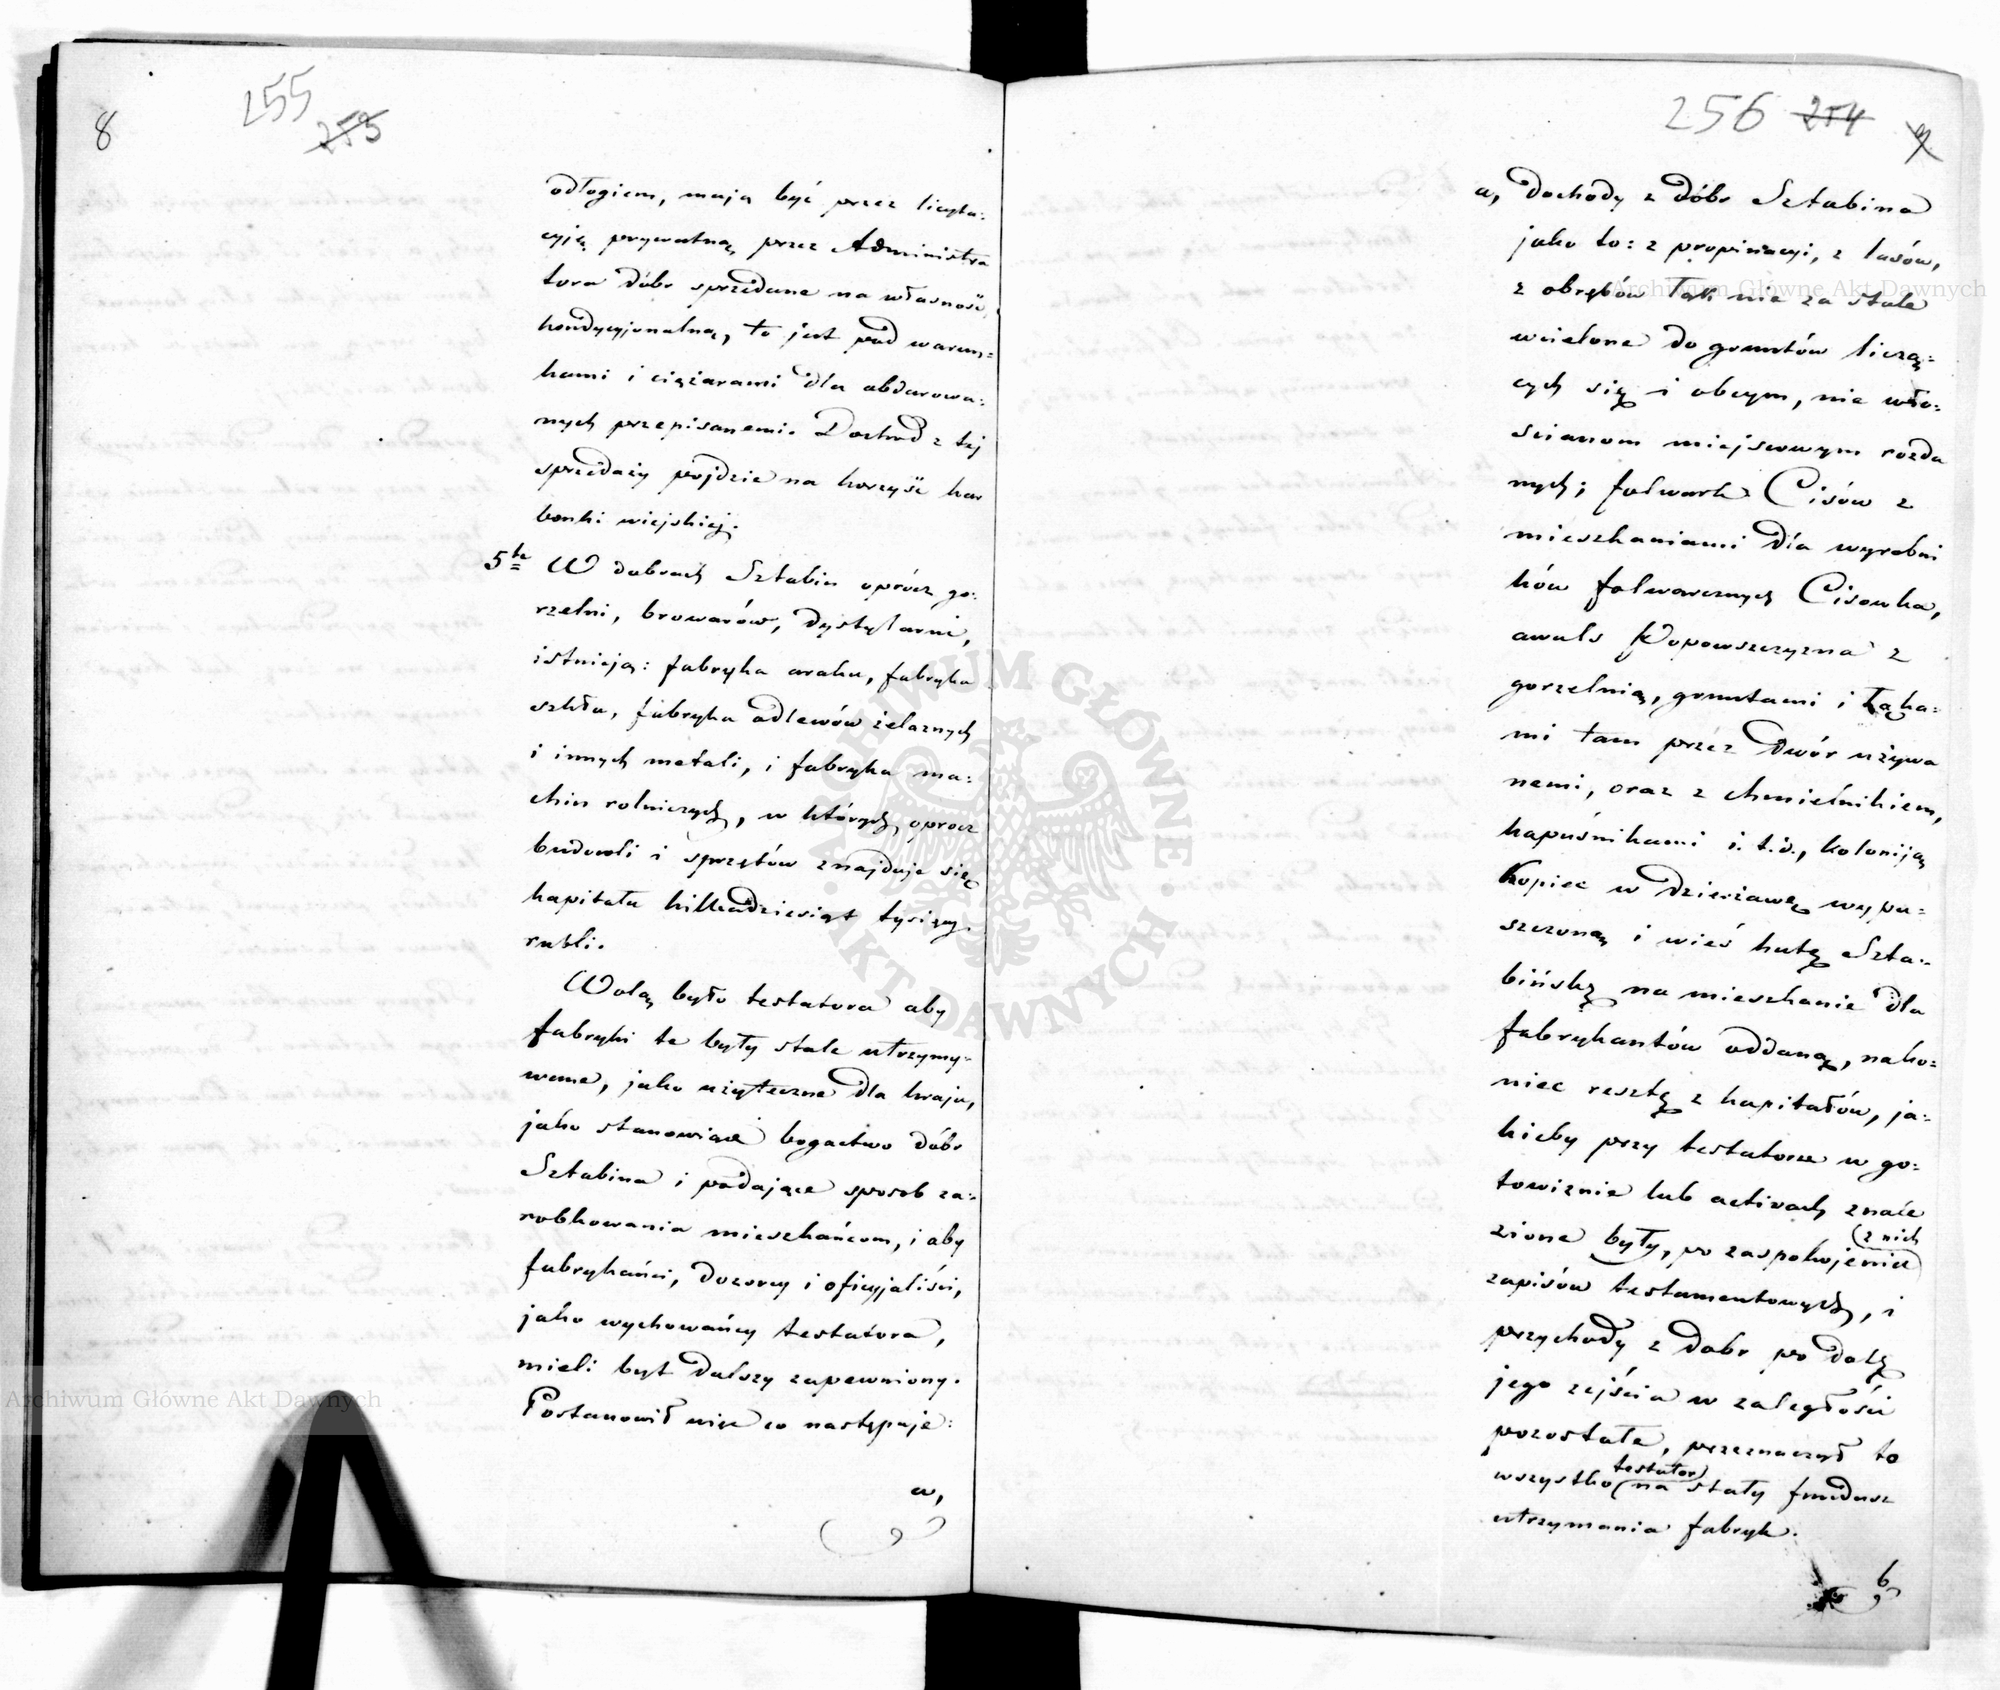 8
255
253
odłogiem, mają być przez licyta:
cyją prywatną przez Administra
tora dóbr sprzedane na własność,
kondycyjonalną, to jest pod warun=
kami i ciężarami dla obdarowa:
nych przepisanemi. Dochód z tej
sprzedaży pójdzie na korzyść kar
bonki wiejskiej.
5te W dobrach Sztabin oprócz go:
rzelni, browarów, dystylarni,
istnieją: fabryka araku, fabryka
szkła, fabryka odlewów żelaznych
i innych metali, i fabryka ma:
chin rolniczych, w których oprócz
budowli i sprzętów znajduje się
kapitału kilkadziesiąt tysięcy
rubli.
Wolą było testatora aby
fabryki te były stale utrzymy=
wane, jako użyteczne dla kraju,
jako stanowiące bogactwo dóbr
Sztabina i podające sposob za=
robkowania mieszkańcom, i aby
fabrykańci, dozorcy i oficyjaliści,
jako wychowańcy testatora,
mieli byt dalszy zapewniony.
Postanowił więc co następuje:
a,
256 254 9
a, Dochody z dóbr Sztabina
jako to: z propinacyi, z lasów,
z obrębów łąk nie za stale
wcielone do gruntów liczą=
cych się i obcym, nie wło=
ścianom miejscowym rozda
nych; folwark Cisów z
mieszkaniami dla wyrobni
ków folwarcznych Cisowka,
awuls Kopowszczyzna z
gorzelnią, gruntami i łąka=
mi tam przez Dwór używa
nemi, oraz z chmielnikiem,
kapuśnikami i. t. d., koloniją
Kopiec w dzierżawę wypu=
szczoną i wieś hutę Szta:
bińską na mieszkanie dla
fabrykantów oddaną, nako=
niec resztę z kapitałów, ja=
kieby przy testatorze w go=
towiznie lub activach znale
zione były, po zaspokojeniu (z nich)
zapisów testamentowych, i
przychody z dobr po datę
jego zejścia w zaległości
pozostałe, przeznaczył to
wszystko (testator) na stały fundusz
utrzymania fabryk.
b,
Archiwum Główne Akt Dawnych
Archiwum Główne Akt Dawnych
ARCHIWUM GŁÓWNE AKT DAWNYCH